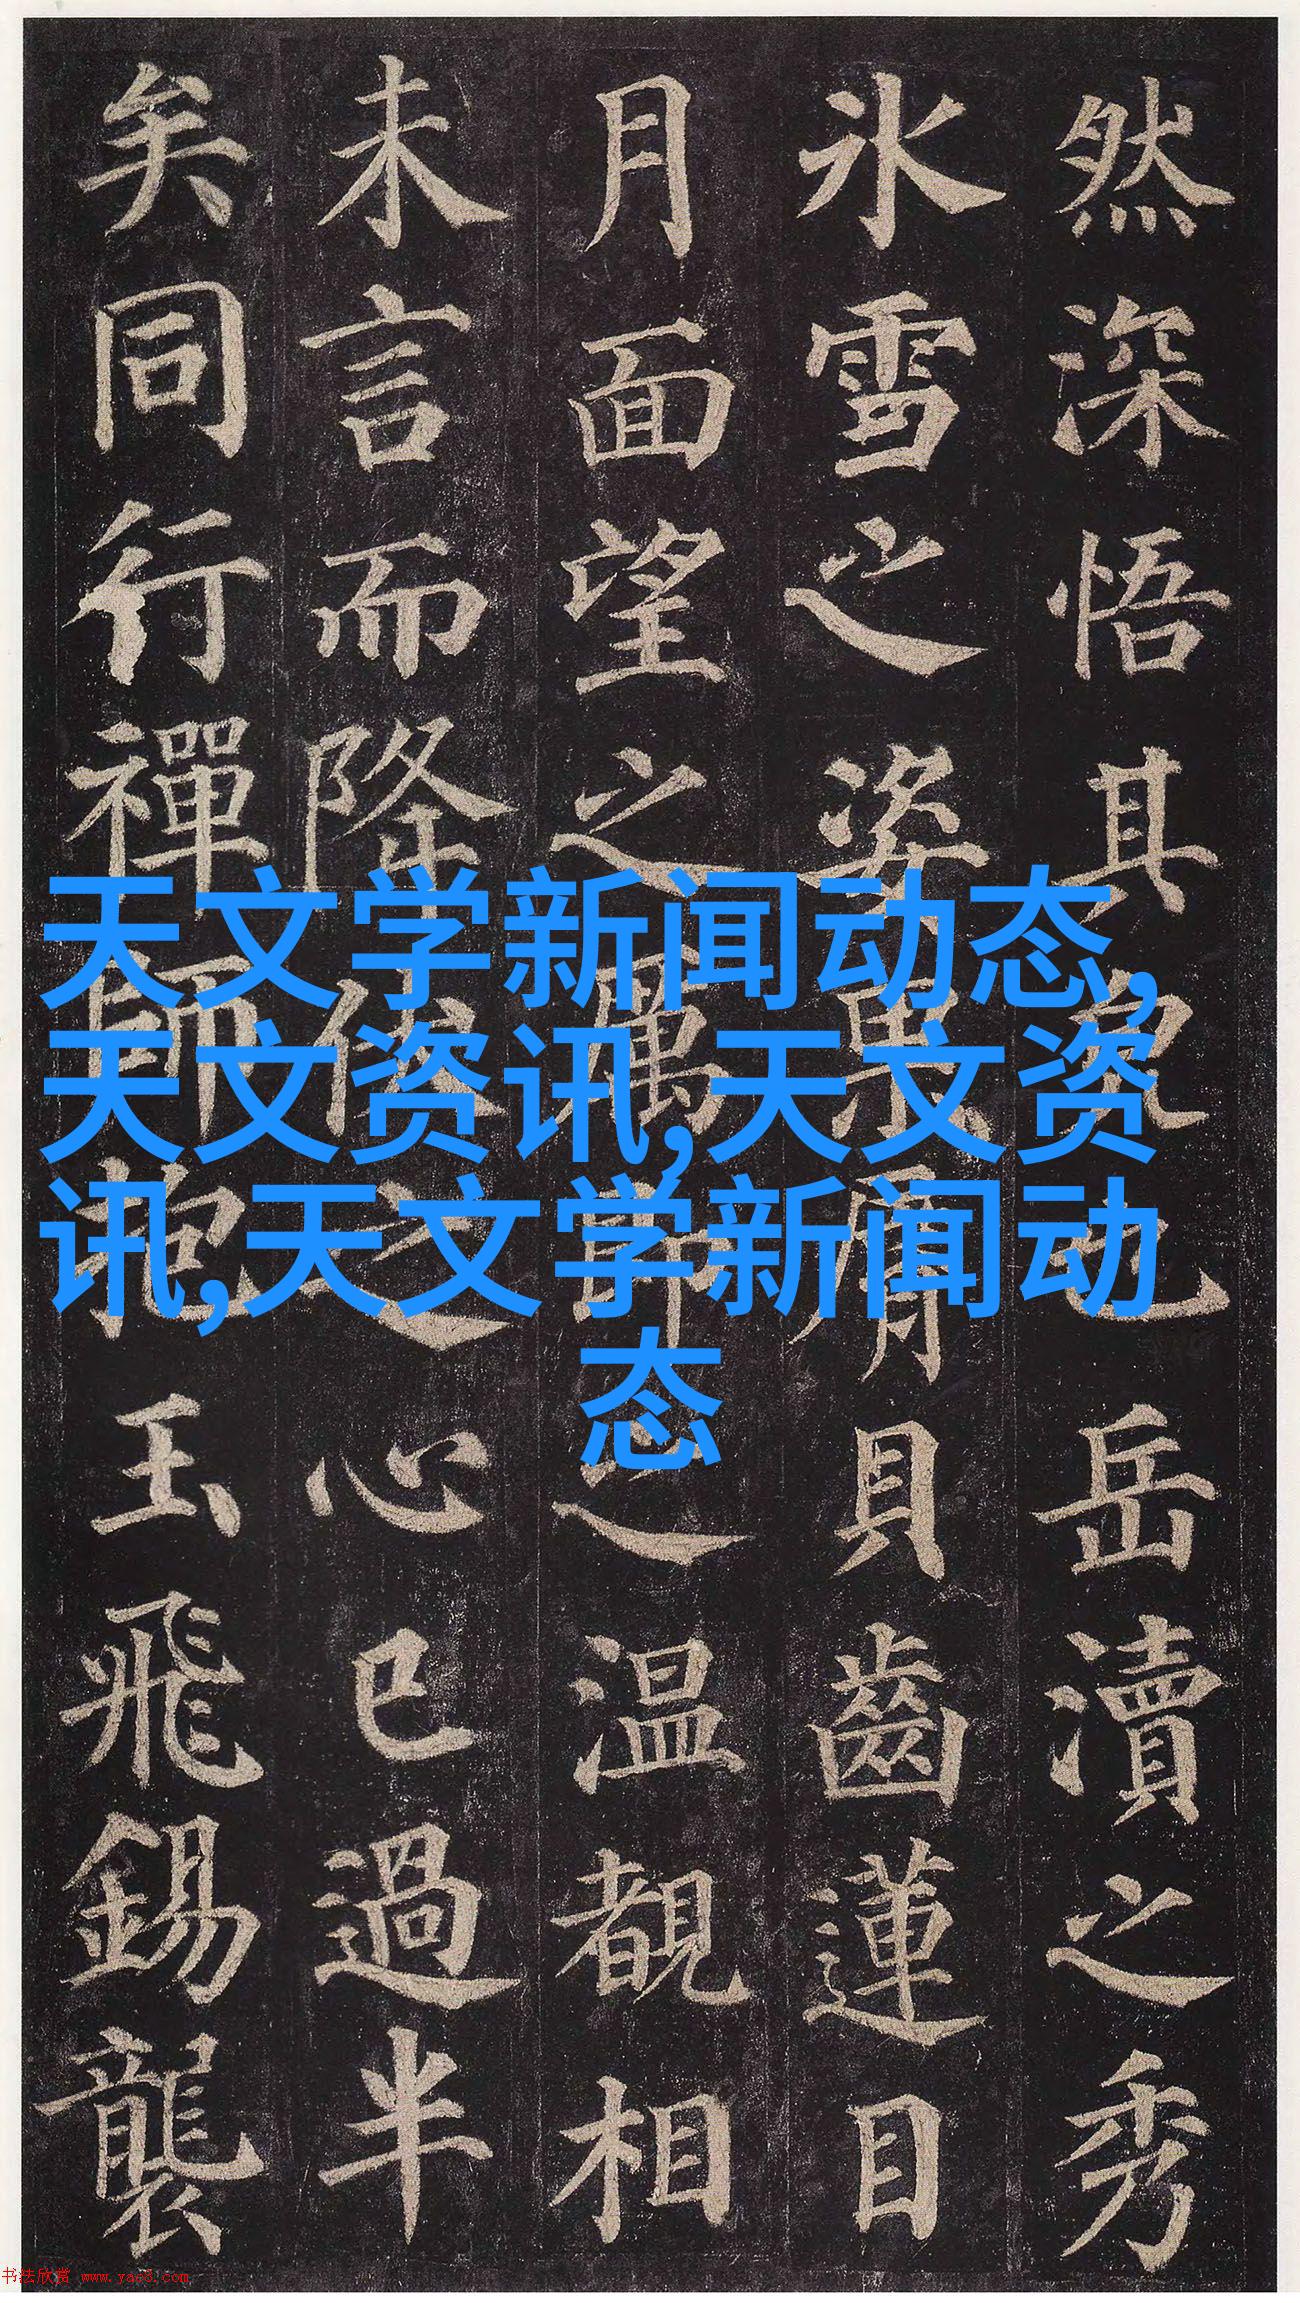 然深悟其也岳瀆之秀
氷雪之姿果脣貝齒蓮目
月面望之厲即之温覩相
未言而降伏之心已過半
矣同行禪師抱玉飛錫襲
天文学新闻动态,
天文资讯,天文资
讯,天文学新闻动
态
书法欣赏 www.yac8.com